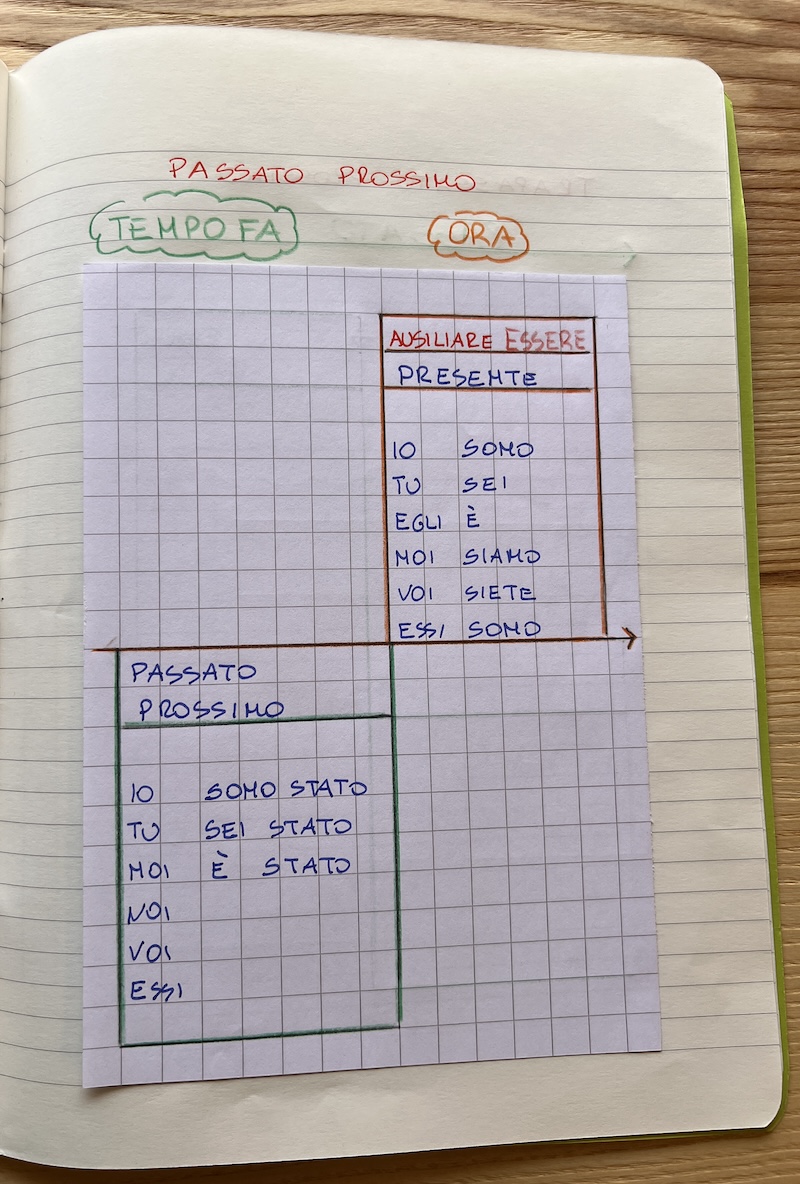 PASSATO PROSSIMO
TEMPO FA
ORA
AUSILIARE ESSERE
PRESENTE
IO SONO
TU SEI
EGLI È
NOI SIAMO
VOI SIETE
ESSI SONO
PASSATO
PROSSIMO
IO SONO STATO
TU SEI STATO
NOI È STATO
NOI
VOI
ESSI